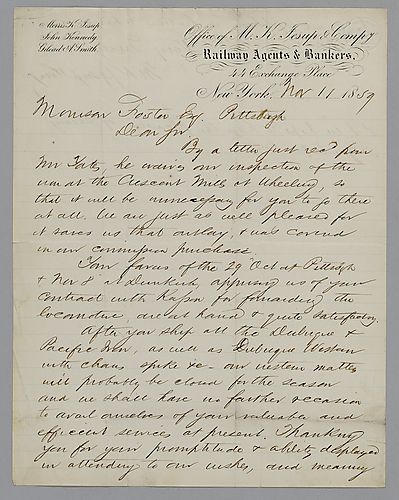 Morris K. Jesup
John Kennedy
Gilead A. Smith
Office of M. K. Jesup & Compy
Railway Agents & Bankers,
44 Exchange Place
New York, Nov 11 1859
Morrison Foster Esq. Pittsbgh
Dear Sir
By a letter just recd from
Mr Yates he waives our inspection of the
iron at the Crescent Mills at Wheeling, so
that it will be unnecessary for you to go there
at all. We are just as well pleased for
it saves us that outlay, & was covered
in our commission purchase.
Your favors of the 29 Oct at Pittsbgh
& Nov 8 at Dunkirk, apprising us of your
contract with for forwarding the
locomotive, are at hand & quite satisfactory
After you ship all the Dubuque &
Pacific Iron, as well as Dubuque Western
with chairs spike &c - our western matters
will probably be closed for the season
and we shall have no farther occasion
to avail ourselves of your valuable and
efficient services at present. Thanking
you for your promptitude & ability displayed
in attending to our wishes, and meaning